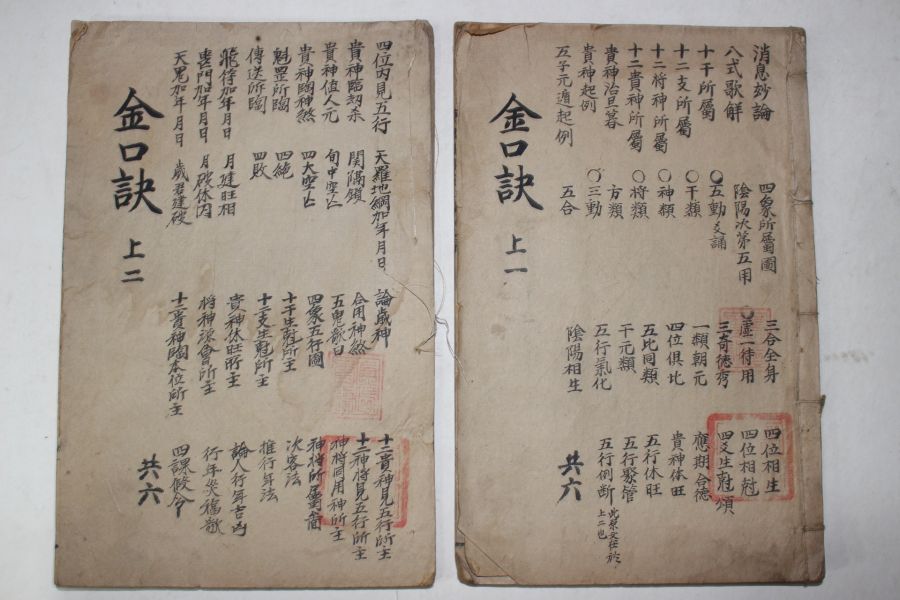 消息妙論
八式歌解
十干所屬
十二支所屬
十二將神所屬
十二貴神所屬
貴神治旦暮
貴神起例
五子元遁起例
四象所屬圖
陰陽次第五用
○五動爻誦
○干類
○神類
○將類
方類
○三動
五合
三合全身
○虛一待用
三奇德秀
一類朝元
四位俱比
五比同類
干元類
五行氣化
陰陽相生
四位相生
四位相尅
四爻生尅頌
應期合德
貴神休旺
五行休旺
五行聚管
五行例断
上二也
金口訣 上一
共六
四位內見五行
貴神臨劫杀
貴神值人元
貴神臨神煞
魁罡所臨
傳送所臨
飛符加年月日
喪門加年月日
天鬼加年月日
天羅地網加年月日
関隔鎖
旬中空亡
四大空亡
四絕
四敗
月建旺相
月破休囚
歲君建破
論歲神
合用神煞
五鬼歌曰
四象五行圖
十干生尅所主
十二支生尅所主
貴神休旺所主
將神源會所主
十二貴神臨本位所主
十二貴神見五行所主
十二神將見五行所主
神將同用神所主
次客法
推行年法
論人行年吉凶
行年災福歌
四課假令
金口訣 上二
共六